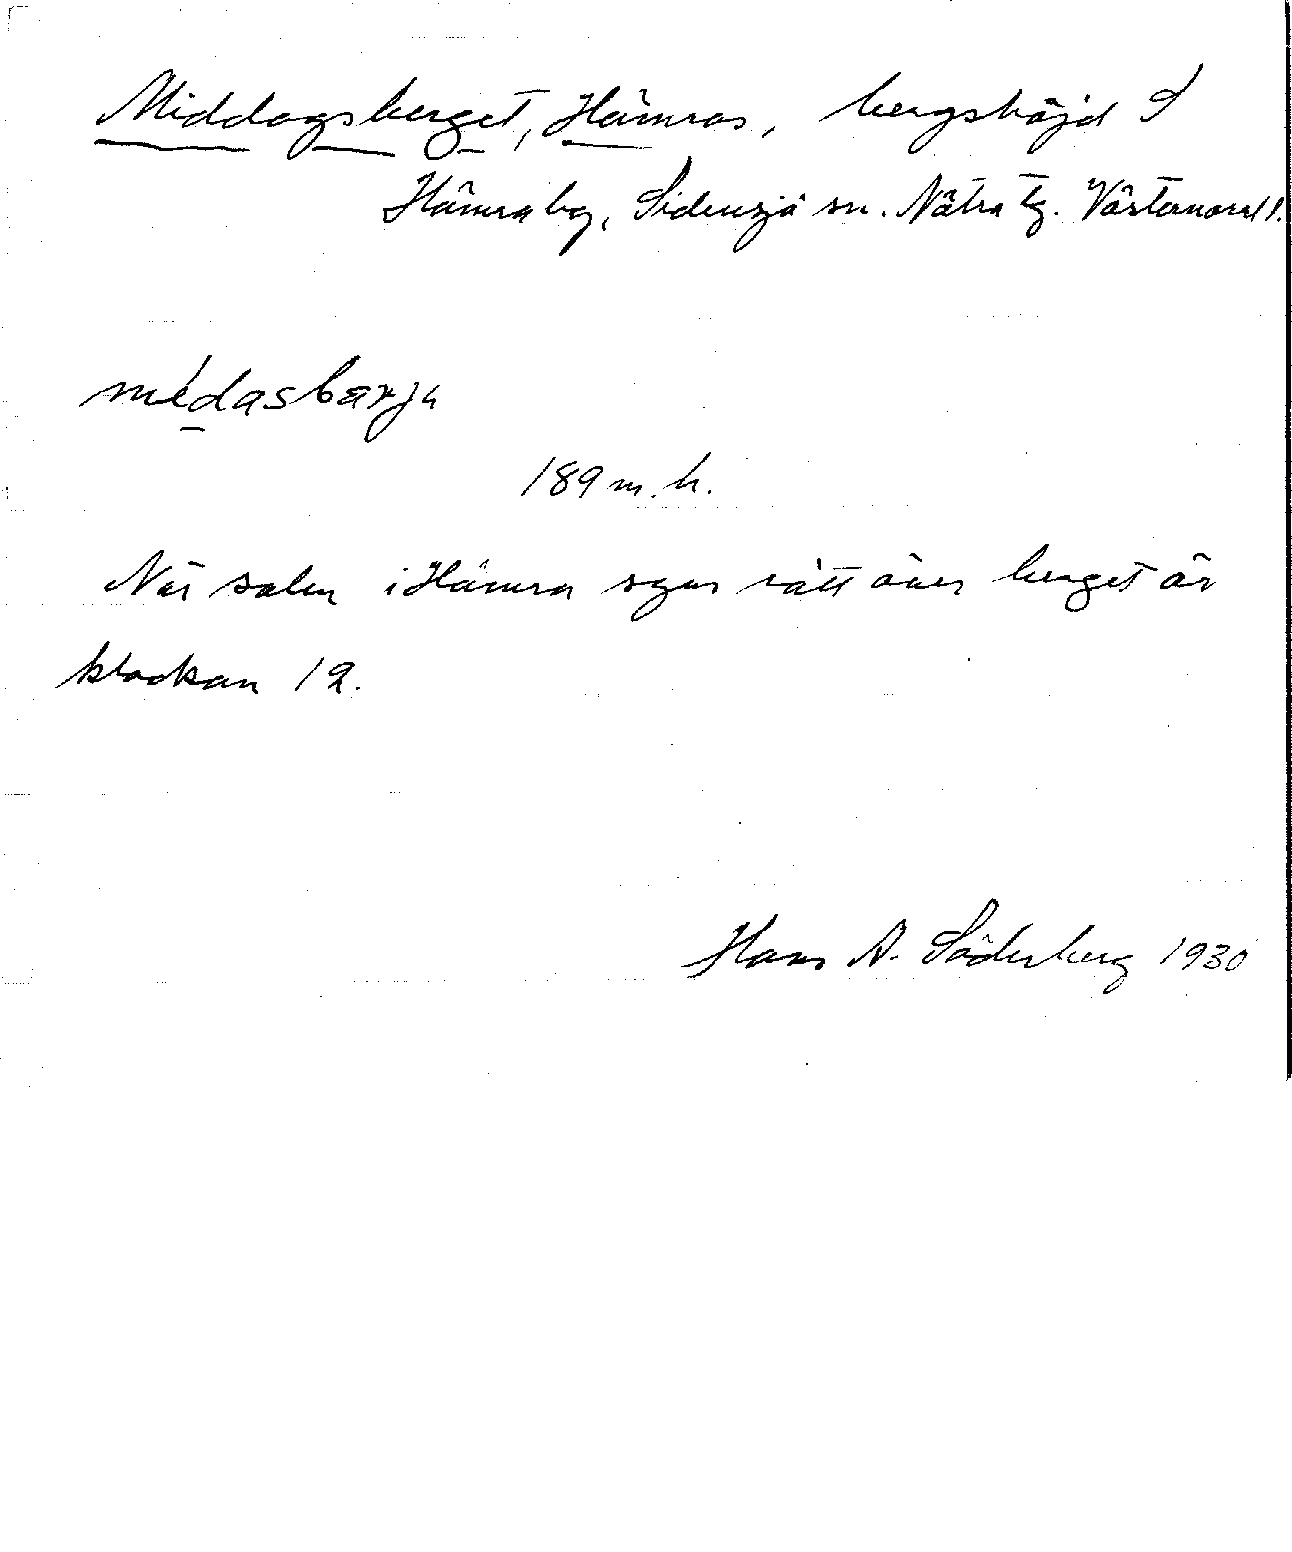 Middagsberget, Hämras, bergshöjd S
Hämra by, Sidensjö sn. Nätra tg. Västernorrl l.
médasbærja
189 m. h.
När solen i Hämra synes rätt över berget är
klockan 12.
Hans A. Söderberg 1930